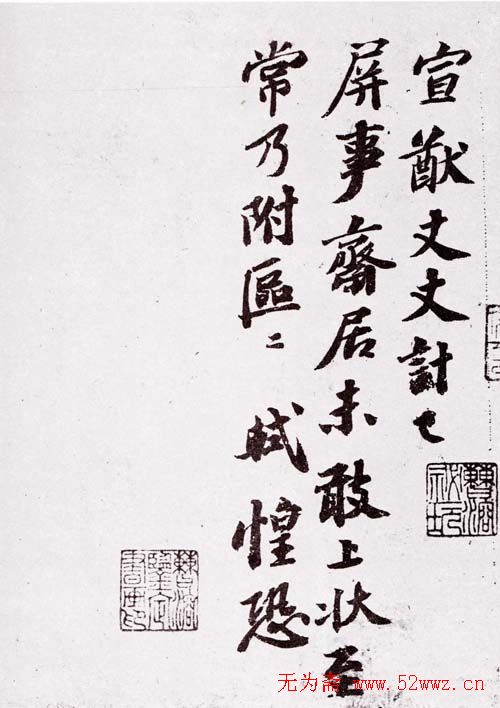 宣猷丈丈計已
屏事齋居未敢上状至
常乃附區〻 軾惶恐
无为斋 www.52wwz.cn